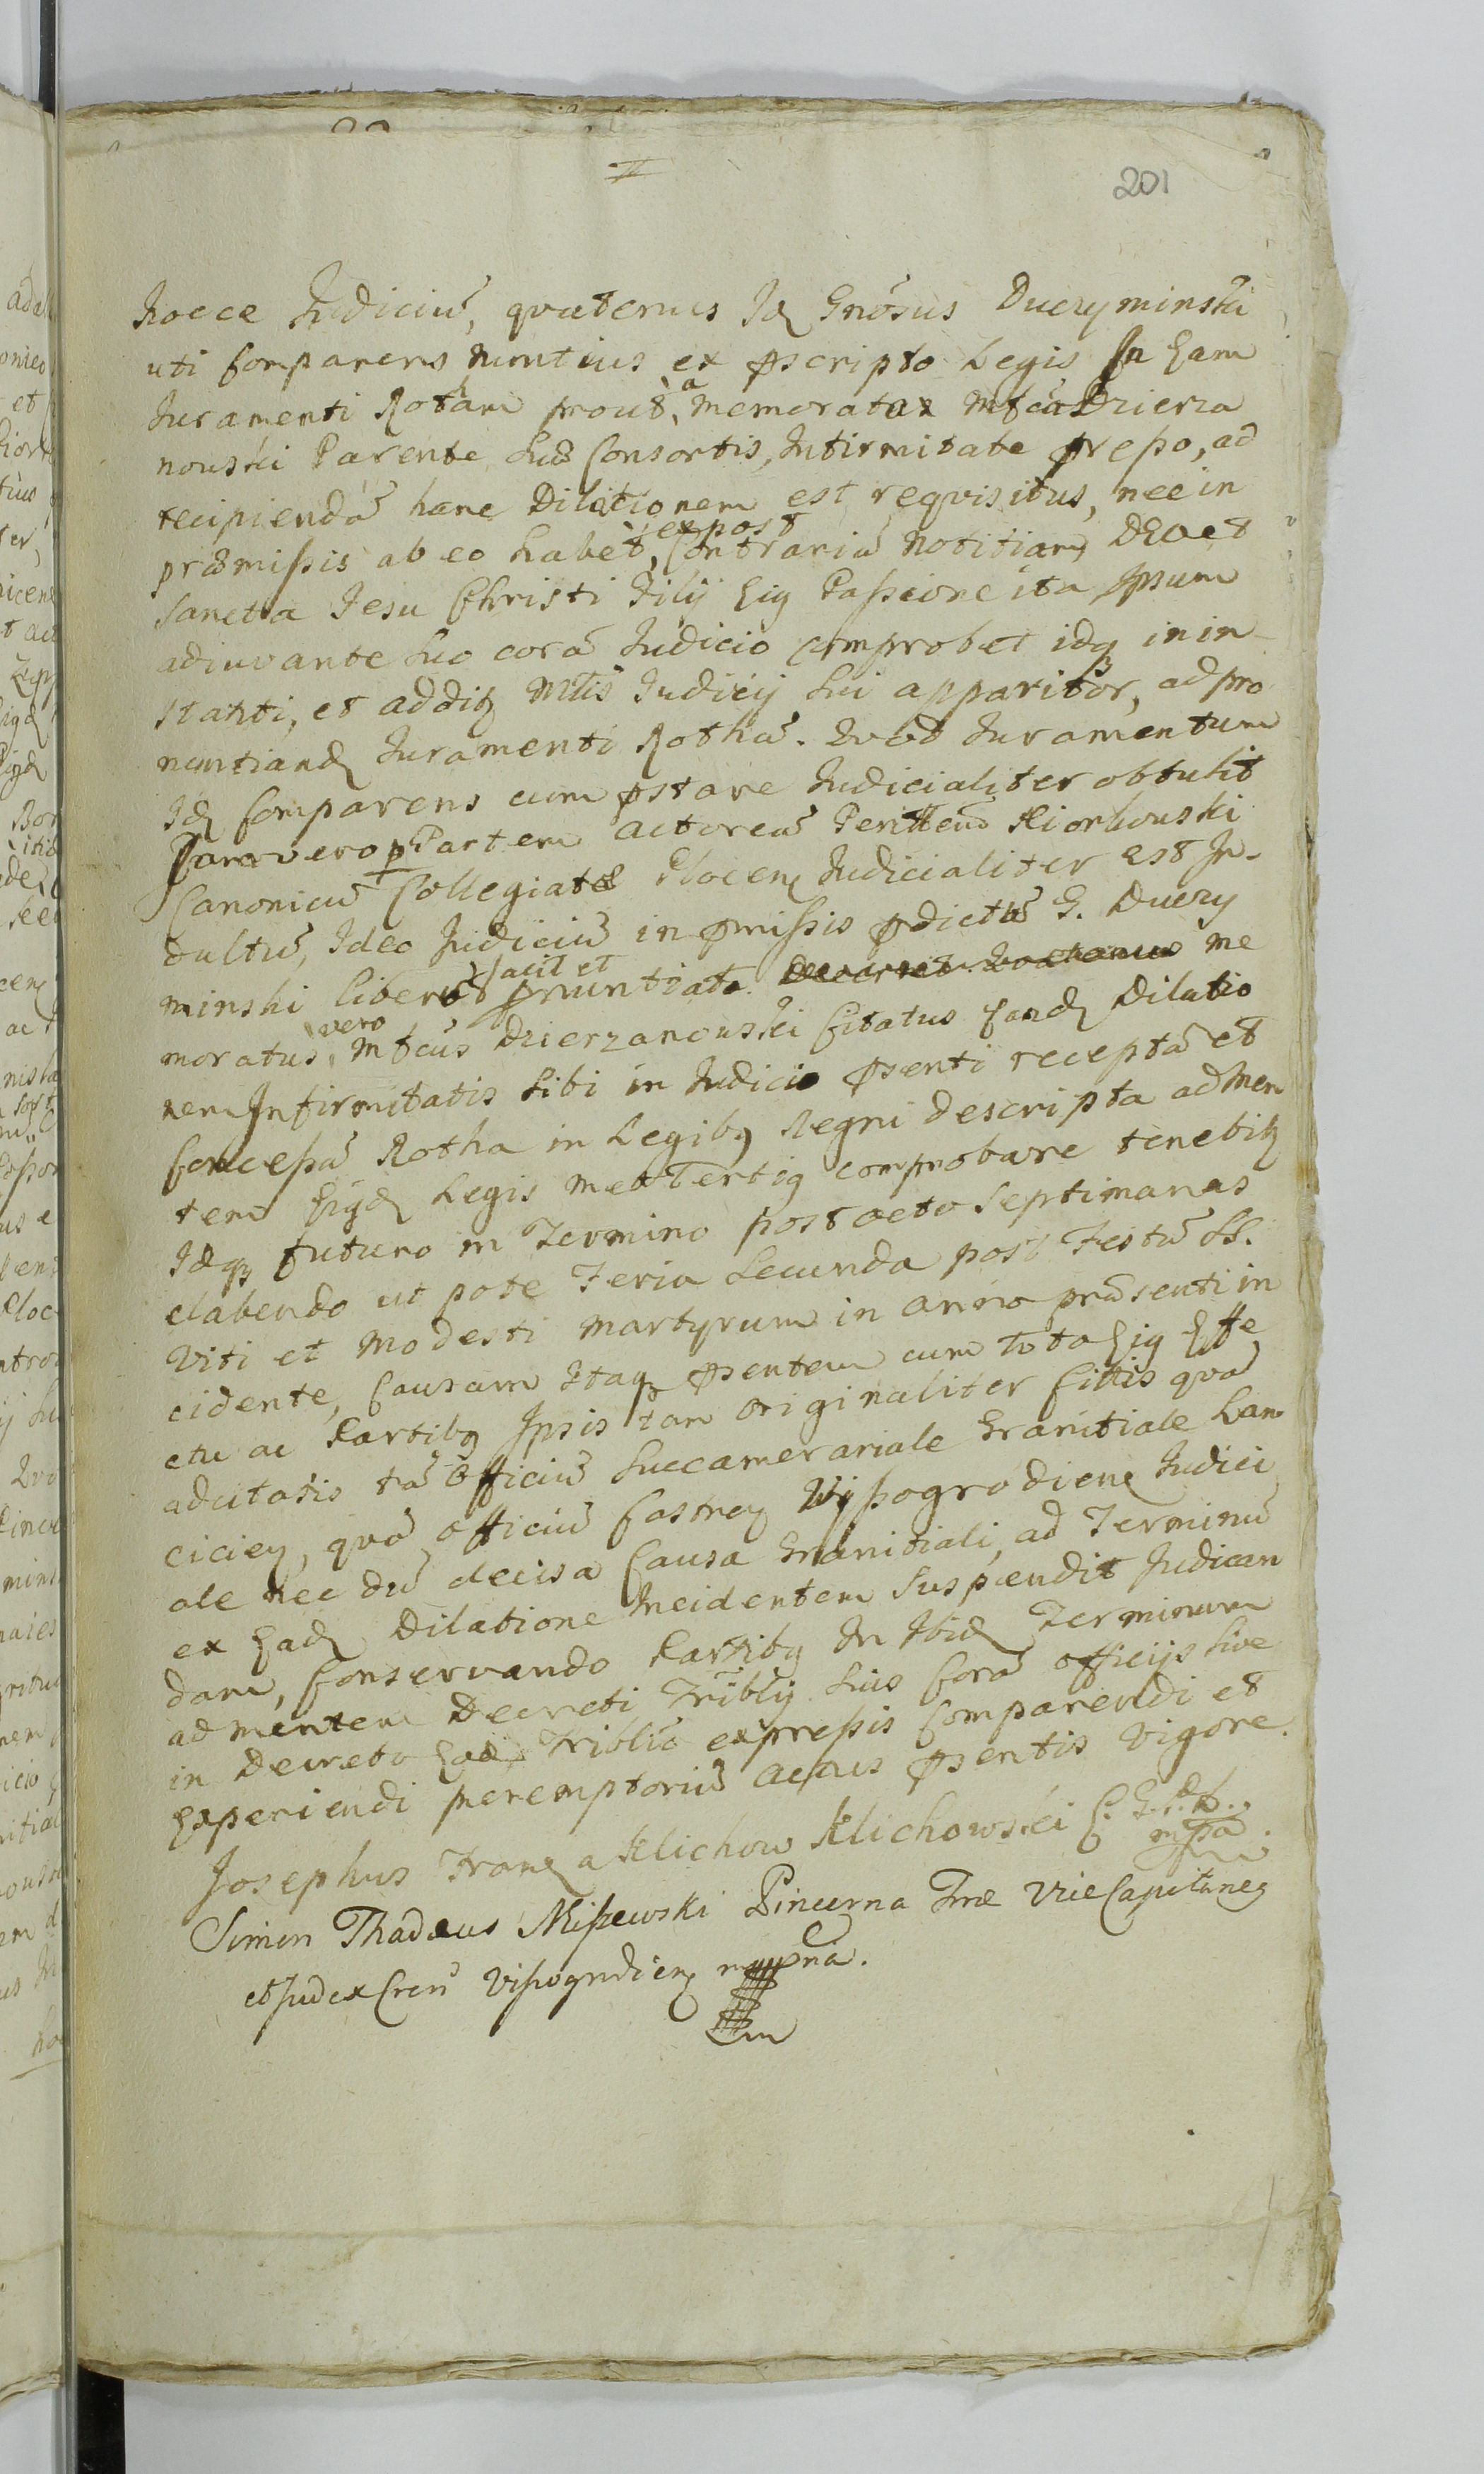 201
hocce Judiciũ, quatenus Idẽ Gnosus Duczyminski
uti Comparens nuntius ex pscripto Legis In Eam
Juramenti Rotham prout, a memorata Mfca Dzierza
nouski Parente sua Consortis, Infirmitate presso, ad
recipiendã hanc Dilationem est requisitus, nec in
præmissis ab eo habet, expost Contrariã notitiam DEO et
Sancta Jesu Christi Filij Eig Passione ita Ipsum
adiuvante suo corã Judicio comprobet idq in in-
stanti, et additz Mtis Judicij sui apparitor, ad pro
nuntiand Juramenti Rothã. Quod Juramentum
Idẽ Comparens cum pstare Judicialiter obtulit
Canonicũ Collegiatæ Plocen Judicialiter est In-
dultũ, Ideo Judiciũ in pmissis pdictũ G. Duczy
minski liberũ facit et pnuntiat. me
moratus, vero Mfcus Dzierzanouski Citatus Eand Dilatio
nem Infirmitatis sibi in Judicio psenti receptã et
Concessã Rotha in Legibq Regni descripta ad Men
tem Eigd Legis Met Tertig comprobare tenebitz
Idqz futuro in Termino post octo Septimanas
elabendo ut pote Feria Secunda post Festũ SS.
Viti et Modesti Martyrum in anno præsenti in
cidente, Causam Itaqz psentem cum Toto Eig Effe
ctu ac Partibq Ipsis tam originaliter Cittis quã
adcitatis tã Officiũ Succamerariale Granitiale Lan
ciciey, quã officiũ Castrey Wyssogrodiene Judici
ale nec dũ decisa Causa Granitiali, ad Terminũ
ex Ead Dilatione Incidentem Suspendit Judican
dam, Conservando Partibq In Ibid Terminum
ad mentem Decreti Triblij suis Corã officijs sive
in Decreto Eod Triblij expressis Comparendi et
Experiendi peremptoriũ actus psentis vigore.
Josephus Franc a Klichow Klichowski
mpa
Simon Thadeus Miszewski Pincerna Træ Vice Capitaneg
et Judex Cren Vissogrodien mppria.